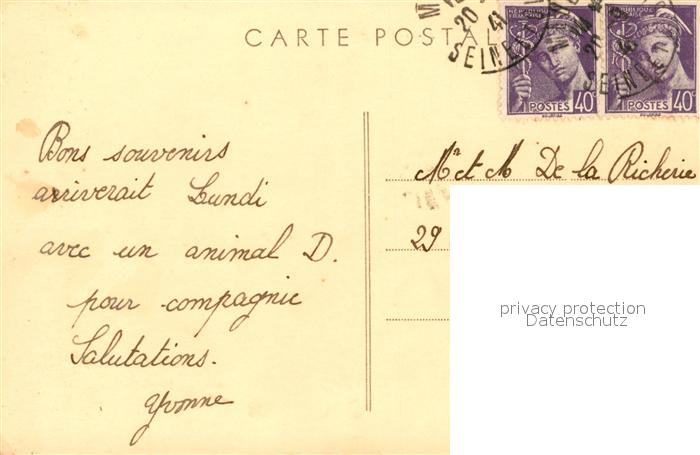 CARTE POSTAL
20
41
SEINE
RÉPUBLIQUE FRANÇAISE
POSTES 40c
POSTES 40c
Bons souvenirs
arriverait Lundi
avec un animal D.
pour compagnie
Salutations.
Yvonne
Mr et M De la Richerie
29
privacy protection
Datenschutz